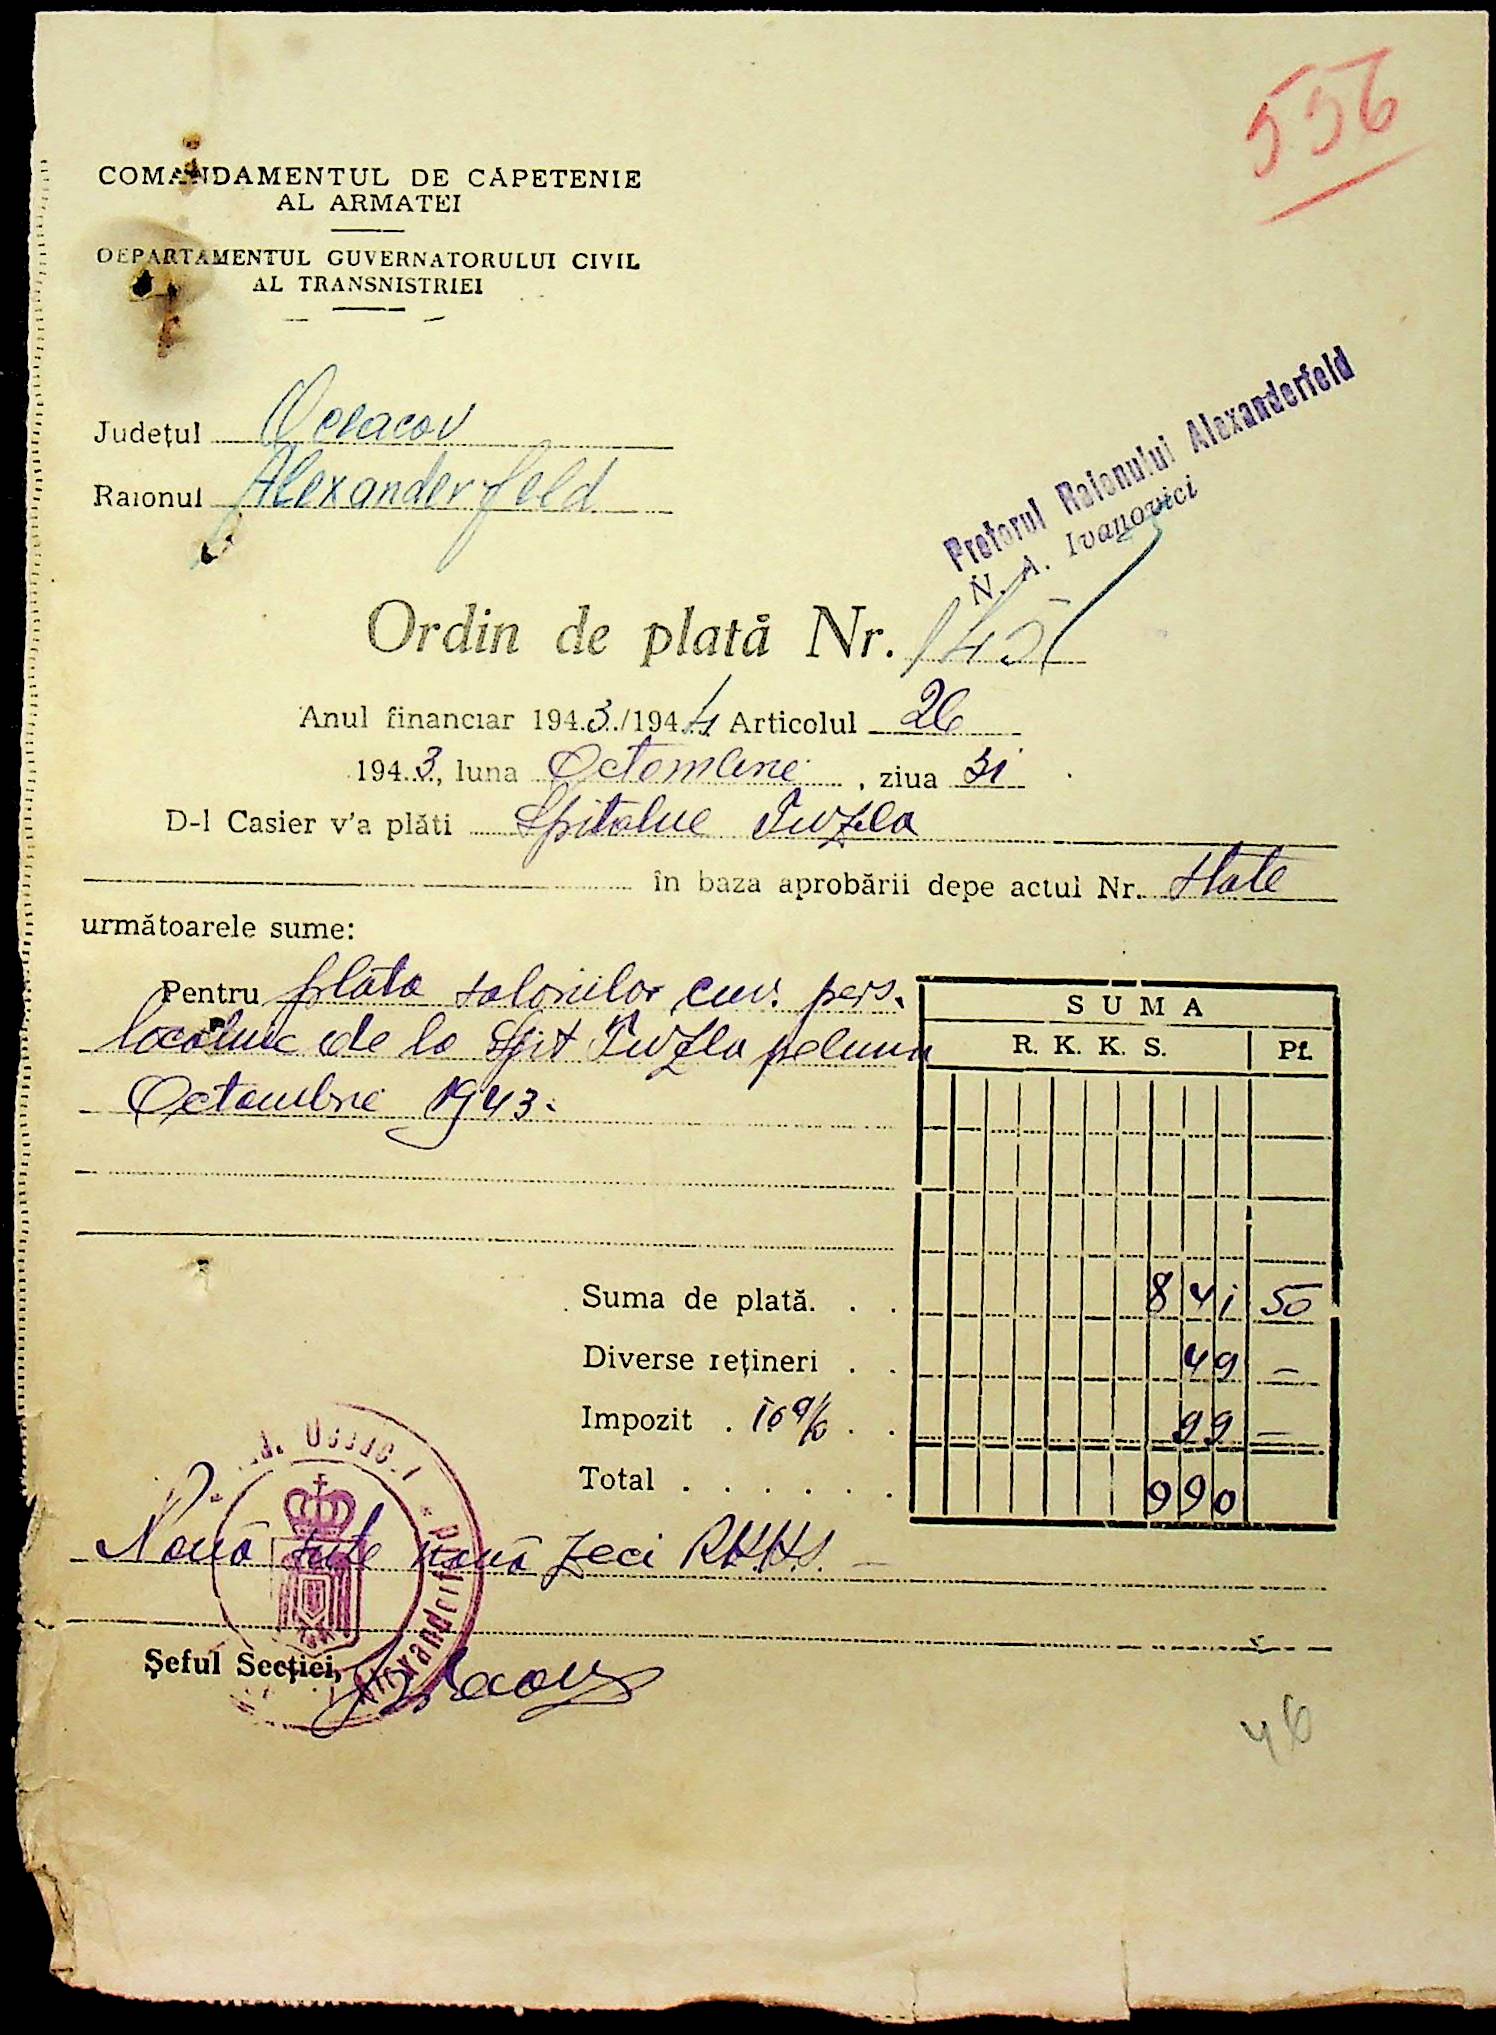 556
COMANDAMENTUL DE CAPETENIE
AL ARMATEI
DEPARTAMENTUL GUVERNATORULUI CIVIL
AL TRANSNISTRIEI
Județul Oceacov
Raionul Alexanderfeld
Pretorul Raionului Alexanderfeld
N. A. Ivanovici
Ordin de plată Nr. 145
Anul financiar 1943/1944 Articolul 26
1943, luna Octombrie, ziua 31
D-l Casier v'a plăti Spitalul Tuzla
în baza aprobării depe actul Nr. State
următoarele sume:
Pentru plata salariilor cuv. pers.
localnic de la Spit Tuzla pe luna
Octombrie 1943.
SUMA
R. K. K. S. Pf.
Suma de plată. . . 841 50
Diverse rețineri . . 49 —
Impozit . 10% . . 99 —
Total . . . . . . . 990
Nouă sute nouă zeci R.K.K.S. —
Șeful Secției,
46